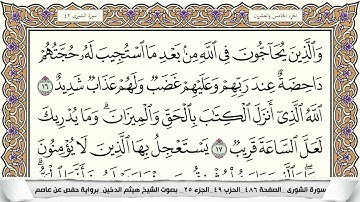 الجزء الخامس والعشرون سورة الشورى ٤٢
وَالَّذِينَ يُحَاجُّونَ فِي اللَّهِ مِن بَعْدِ مَا اسْتُجِيبَ لَهُ حُجَّتُهُمْ
دَاحِضَةٌ عِندَ رَبِّهِمْ وَعَلَيْهِمْ غَضَبٌ وَلَهُمْ عَذَابٌ شَدِيدٌ ١٦
اللَّهُ الَّذِي أَنزَلَ الْكِتَٰبَ بِالْحَقِّ وَالْمِيزَانَ ۗ وَمَا يُدْرِيكَ
لَعَلَّ السَّاعَةَ قَرِيبٌ ١٧ يَسْتَعْجِلُ بِهَا الَّذِينَ لَا يُؤْمِنُونَ
سورة الشورى _ الصفحة ٤٨٦ _ الحزب ٤٩ _ الجزء ٢٥ _ بصوت الشيخ هيثم الدخين _ برواية حفص عن عاصم